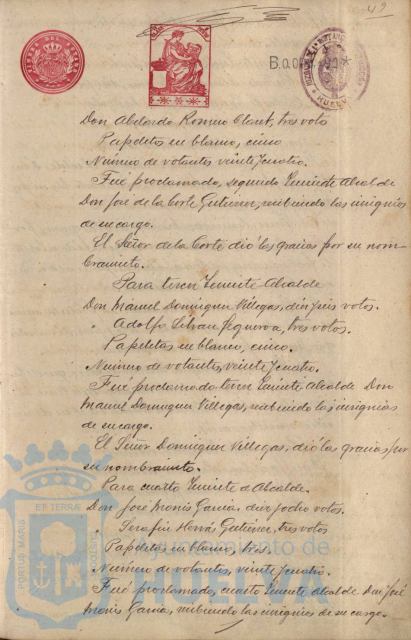 42
B.0.0
HUELVA
Don Abelardo Romero Claret, tres votos
Papeletas en blanco, cinco
Número de votantes veinte y cuatro.
Fué proclamado, segundo Teniente Alcalde
Don José de la Corte Gutierrez, recibiendo las insignias
de su cargo.
El Señor de la Corte dió las gracias por su nom-
bramiento.
Para tercer Teniente Alcalde
Don Manuel Dominguez Villegas, diez y seis votos.
" Adolfo Figueroa, tres votos.
Papeletas en blanco, cinco.
Número de votantes, veinte y cuatro.
Fué proclamado tercer Teniente Alcalde Don
Manuel Dominguez Villegas, recibiendo las insignias
de su cargo.
El Señor Dominguez Villegas, dió las gracias por
su nombramiento.
Para cuarto Teniente de Alcalde.
Don José Monis Garcia, diez y ocho votos.
" Serafin Gutierrez, tres votos
Papeletas en blanco, tres.
Número de votantes, veinte y cuatro.
Fué proclamado, cuarto Teniente Alcalde Don José
Monis Garcia, recibiendo las insignias de su cargo.
ET TERRÆ
PORTUS MARIS
Ayuntamiento de
HUELVA